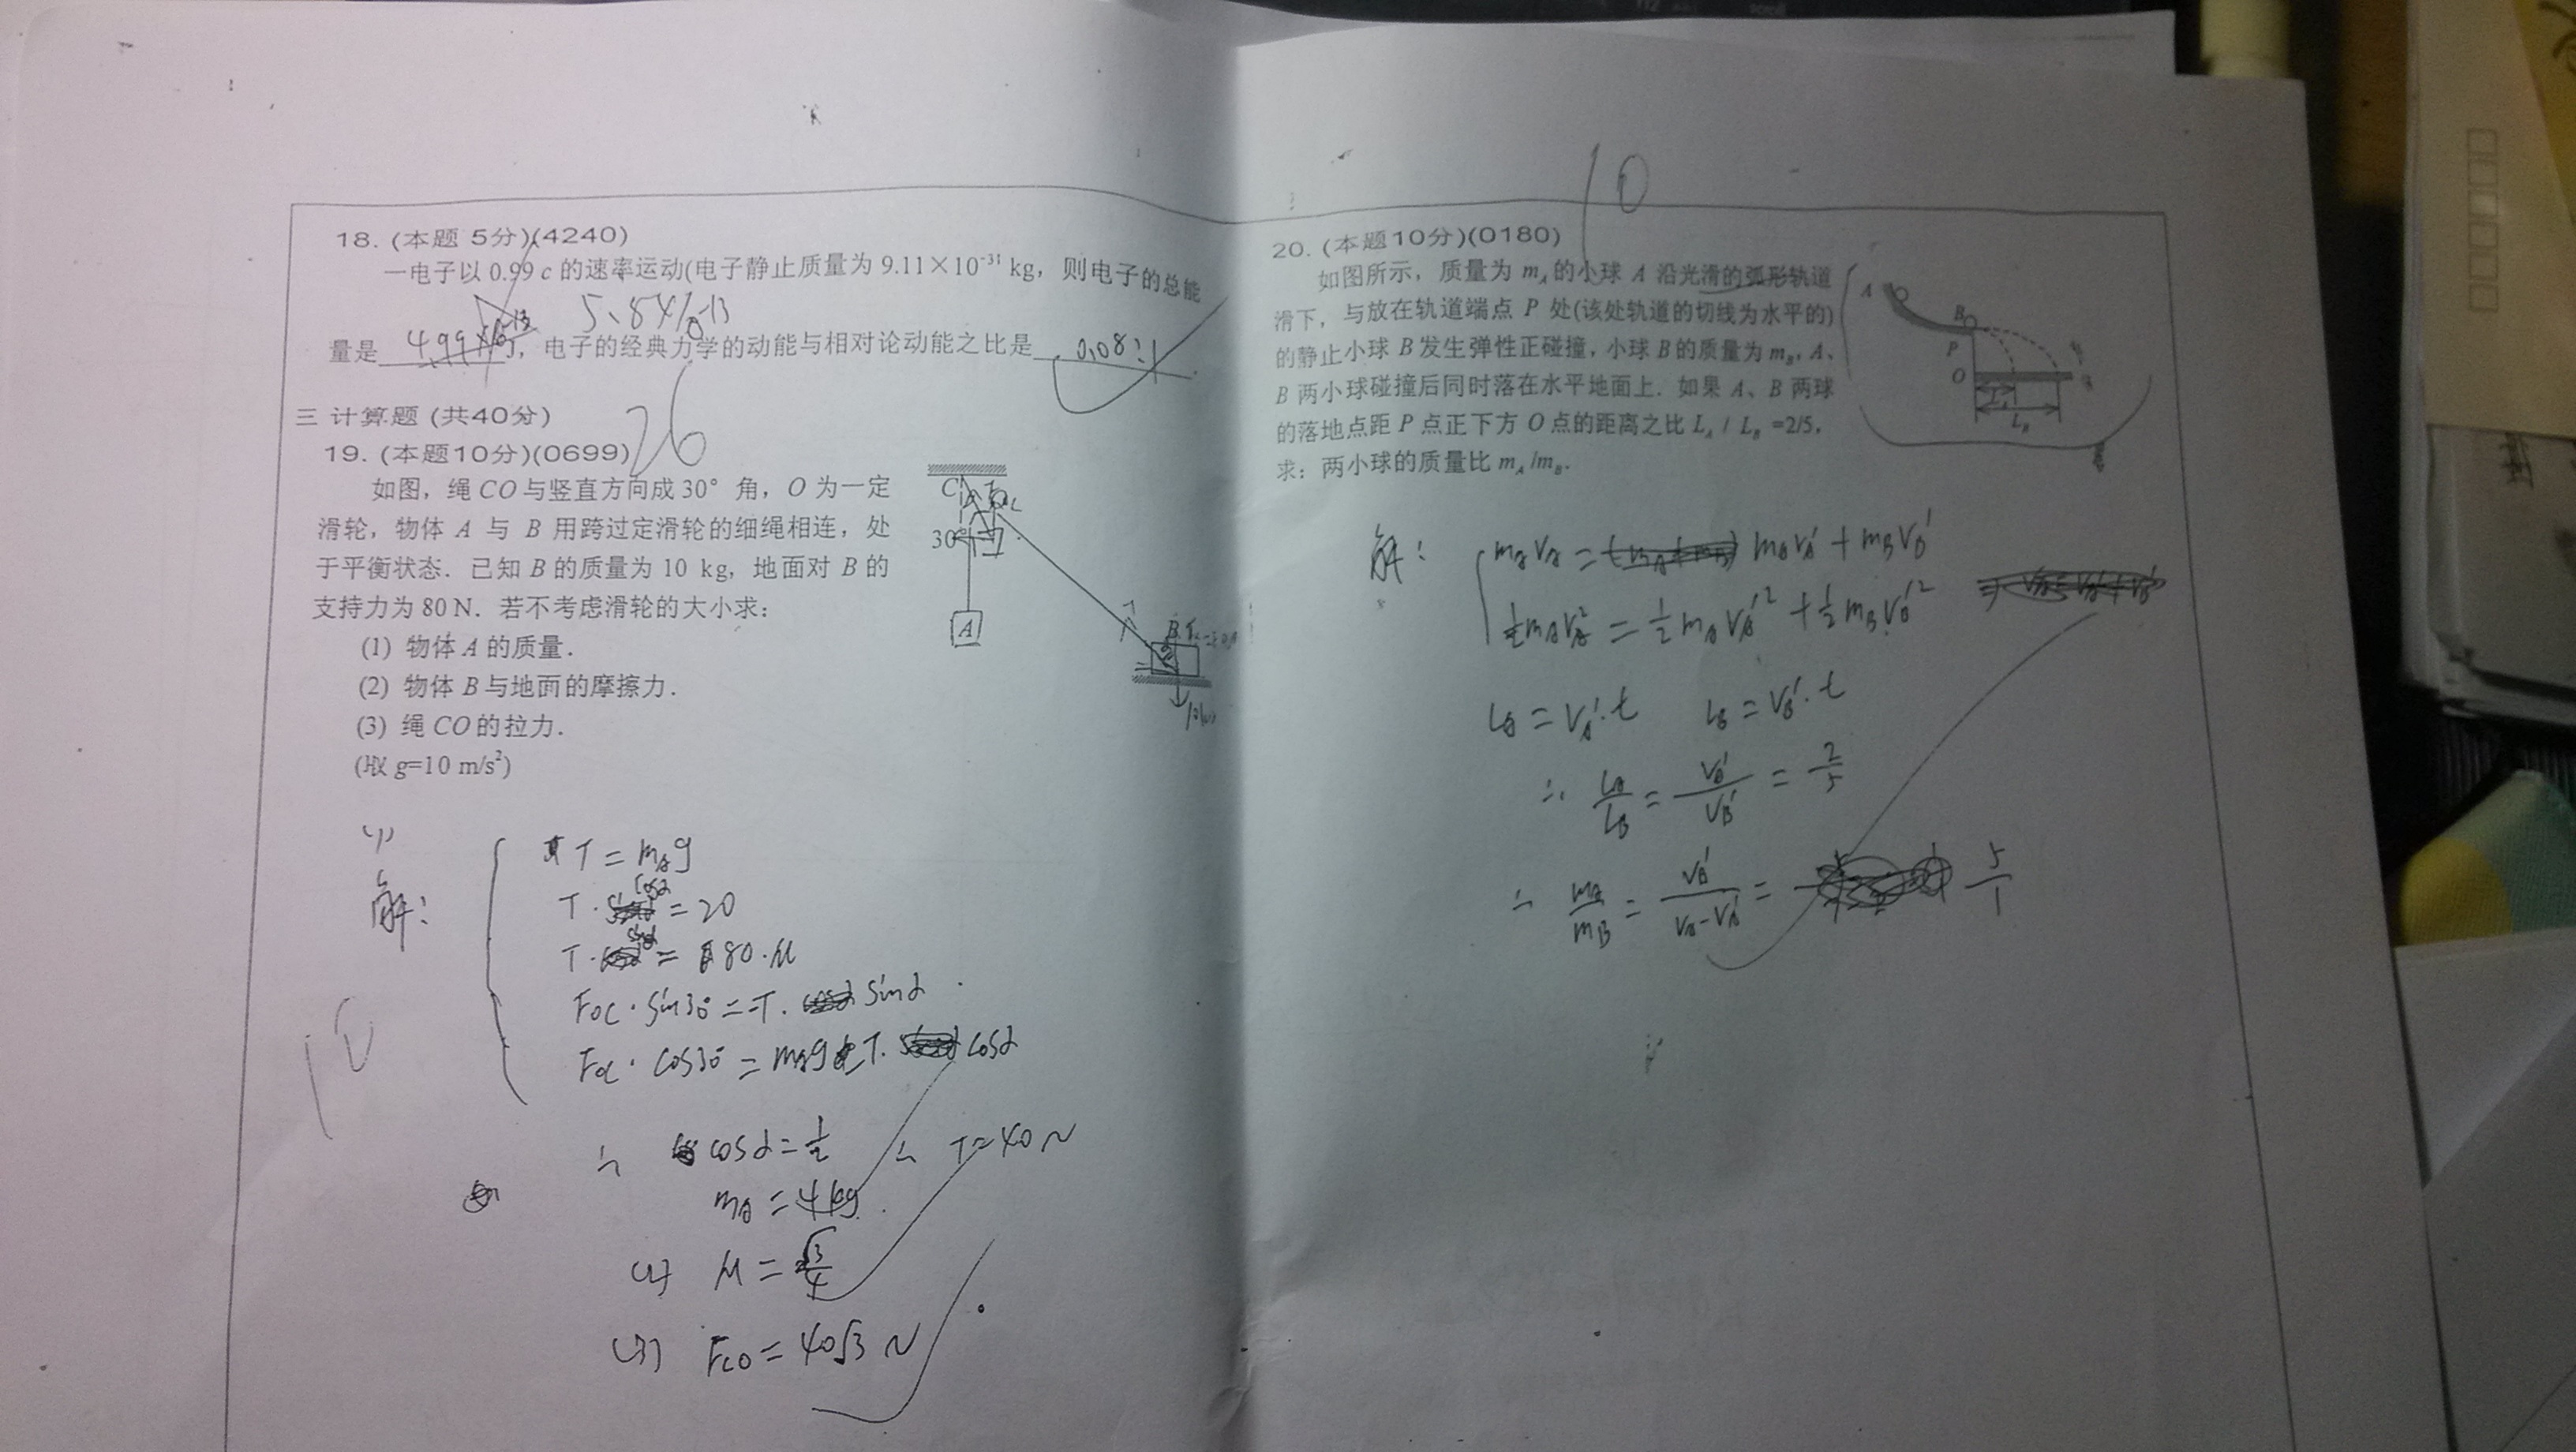 18. (本题 5分)(4240)
一电子以 0.99 c 的速率运动(电子静止质量为 9.11×10⁻³¹ kg, 则电子的总能
5.8×10⁻¹³
量是 4.99×10⁻¹³ J, 电子的经典力学的动能与相对论动能之比是 0.08:1 .
三 计算题 (共40分)
26
19. (本题10分)(0699)
如图, 绳 CO 与竖直方向成 30° 角, O 为一定
滑轮, 物体 A 与 B 用跨过定滑轮的细绳相连, 处
于平衡状态. 已知 B 的质量为 10 kg, 地面对 B 的
支持力为 80 N. 若不考虑滑轮的大小求:
(1) 物体 A 的质量.
(2) 物体 B 与地面的摩擦力.
(3) 绳 CO 的拉力.
(取 g=10 m/s²)
C
30°
A
B
(1)
解:
T = m_A g
T · cosα = 20
T · sinα = 80 · μ
F_OC · sin30° = T · sinα
F_OC · cos30° = m_A g + T · cosα
∴ cosα = 1/2 ∴ T = 40 N
m_A = 4 kg
(2) μ = √3/4
(3) F_CO = 40√3 N
10
10
20. (本题10分)(0180)
如图所示, 质量为 m_A 的小球 A 沿光滑的弧形轨道
滑下, 与放在轨道端点 P 处(该处轨道的切线为水平的)
的静止小球 B 发生弹性正碰撞, 小球 B 的质量为 m_B, A、
B 两小球碰撞后同时落在水平地面上. 如果 A、B 两球
的落地点距 P 点正下方 O 点的距离之比 L_A / L_B =2/5,
求: 两小球的质量比 m_A /m_B.
A
B
P
O
L_A
L_B
解: m_A v_A = m_A v_A' + m_B v_B'
½ m_A v_A² = ½ m_A v_A'² + ½ m_B v_B'²
L_A = v_A' · t L_B = v_B' · t
∴ L_A/L_B = v_A'/v_B' = 2/5
∴ m_A/m_B = v_B'/(v_A - v_A') = 5/1